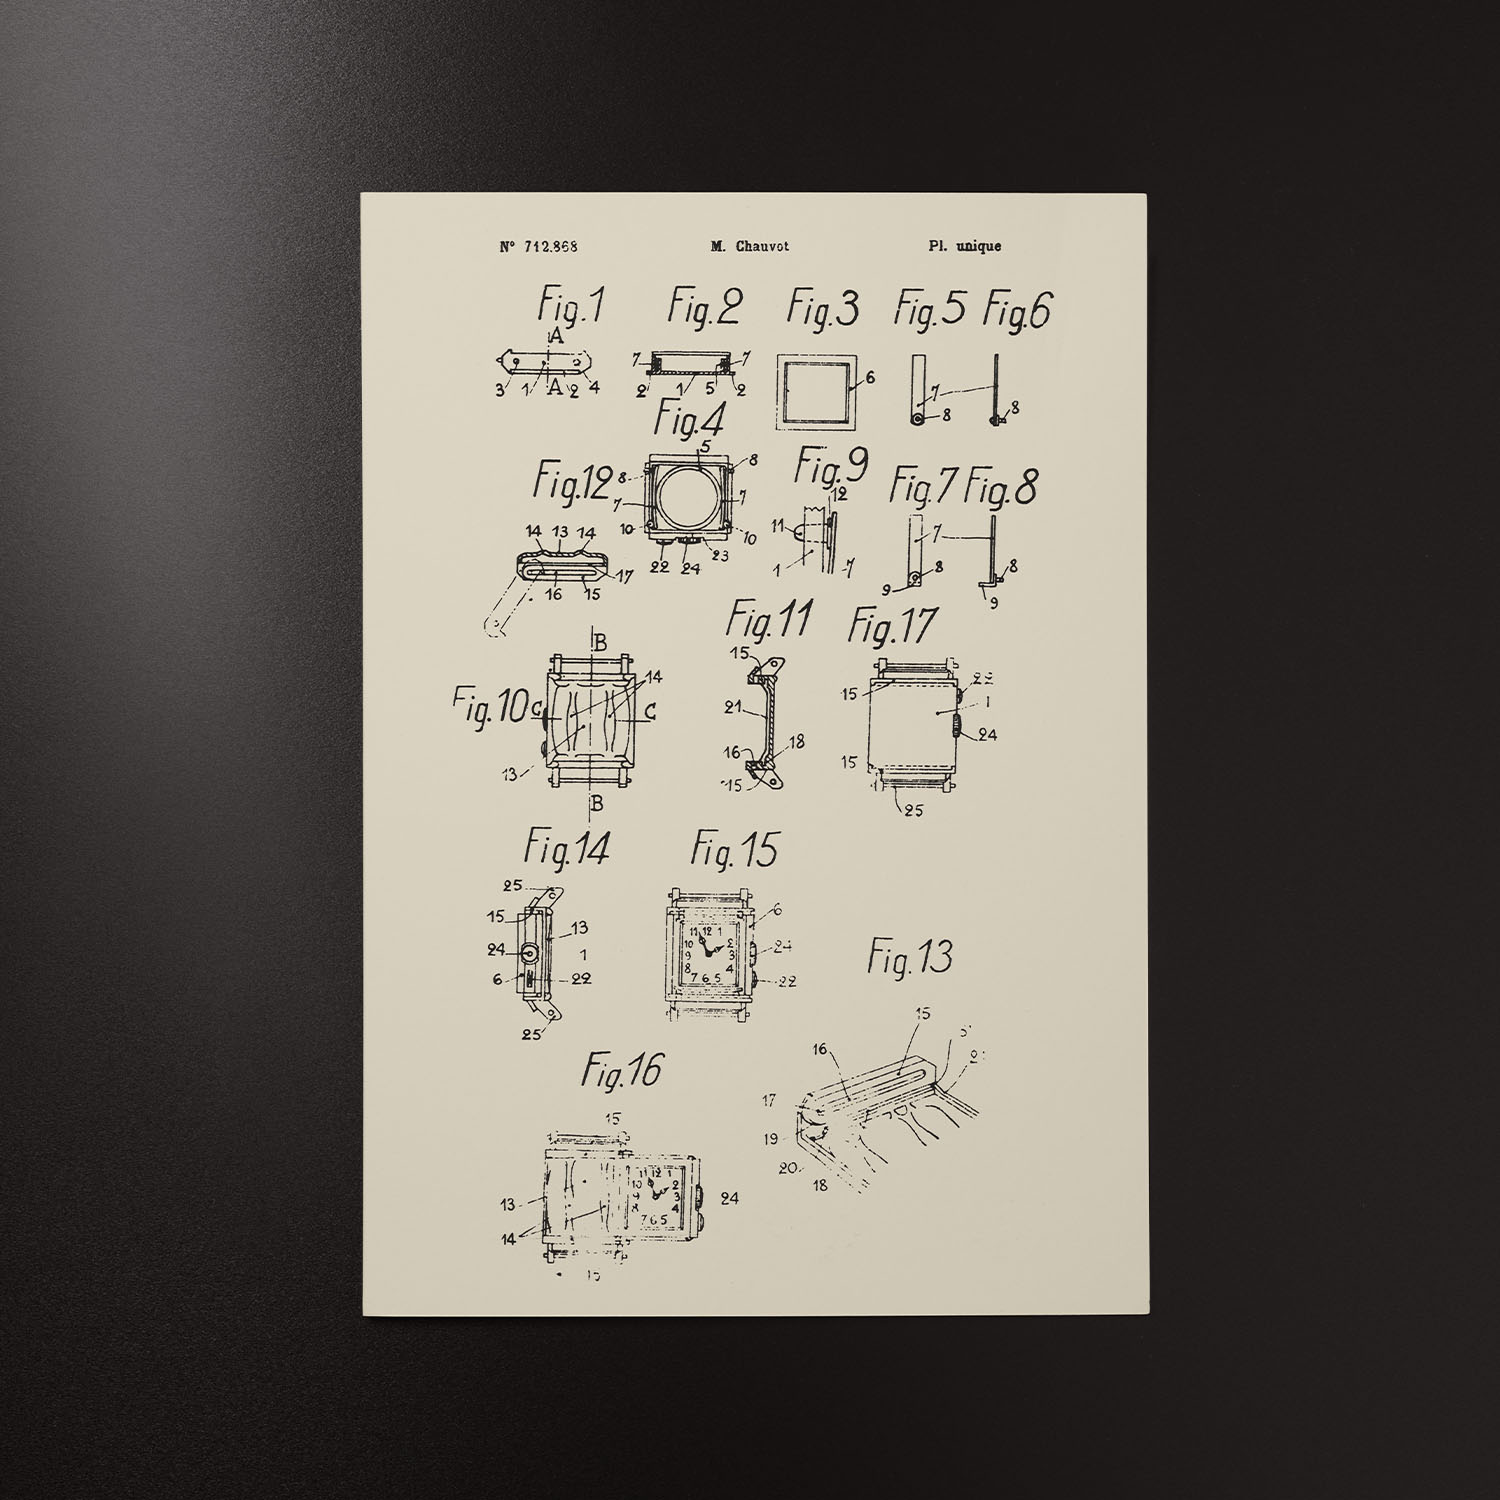 Nº 712.868 M. Chauvot Pl. unique
Fig.1 Fig.2 Fig.3 Fig.5 Fig.6
A
7 7
6
3 1 A 2 4
2 1 5 2
7 8 8
Fig.4
5
Fig.12 8 8
Fig.9
12
Fig.7 Fig.8
7 7
10 10
11
7
14 13 14
22 24 23
1 7
8 8
17
16 15
9 9
Fig.11 Fig.17
B
15
14
22
15
Fig.10 C C
21
1
24
18
16
15
13
15
25
B
Fig.14 Fig.15
25
15
6
13
24
11 12 1
10 2
9 3
8 4
7 6 5
24
1
6 22
22
25
Fig.13
15
16
Fig.16
17
15
19
20
18
11 12 1
10 2
9 3
8 4
7 6 5
13
24
14